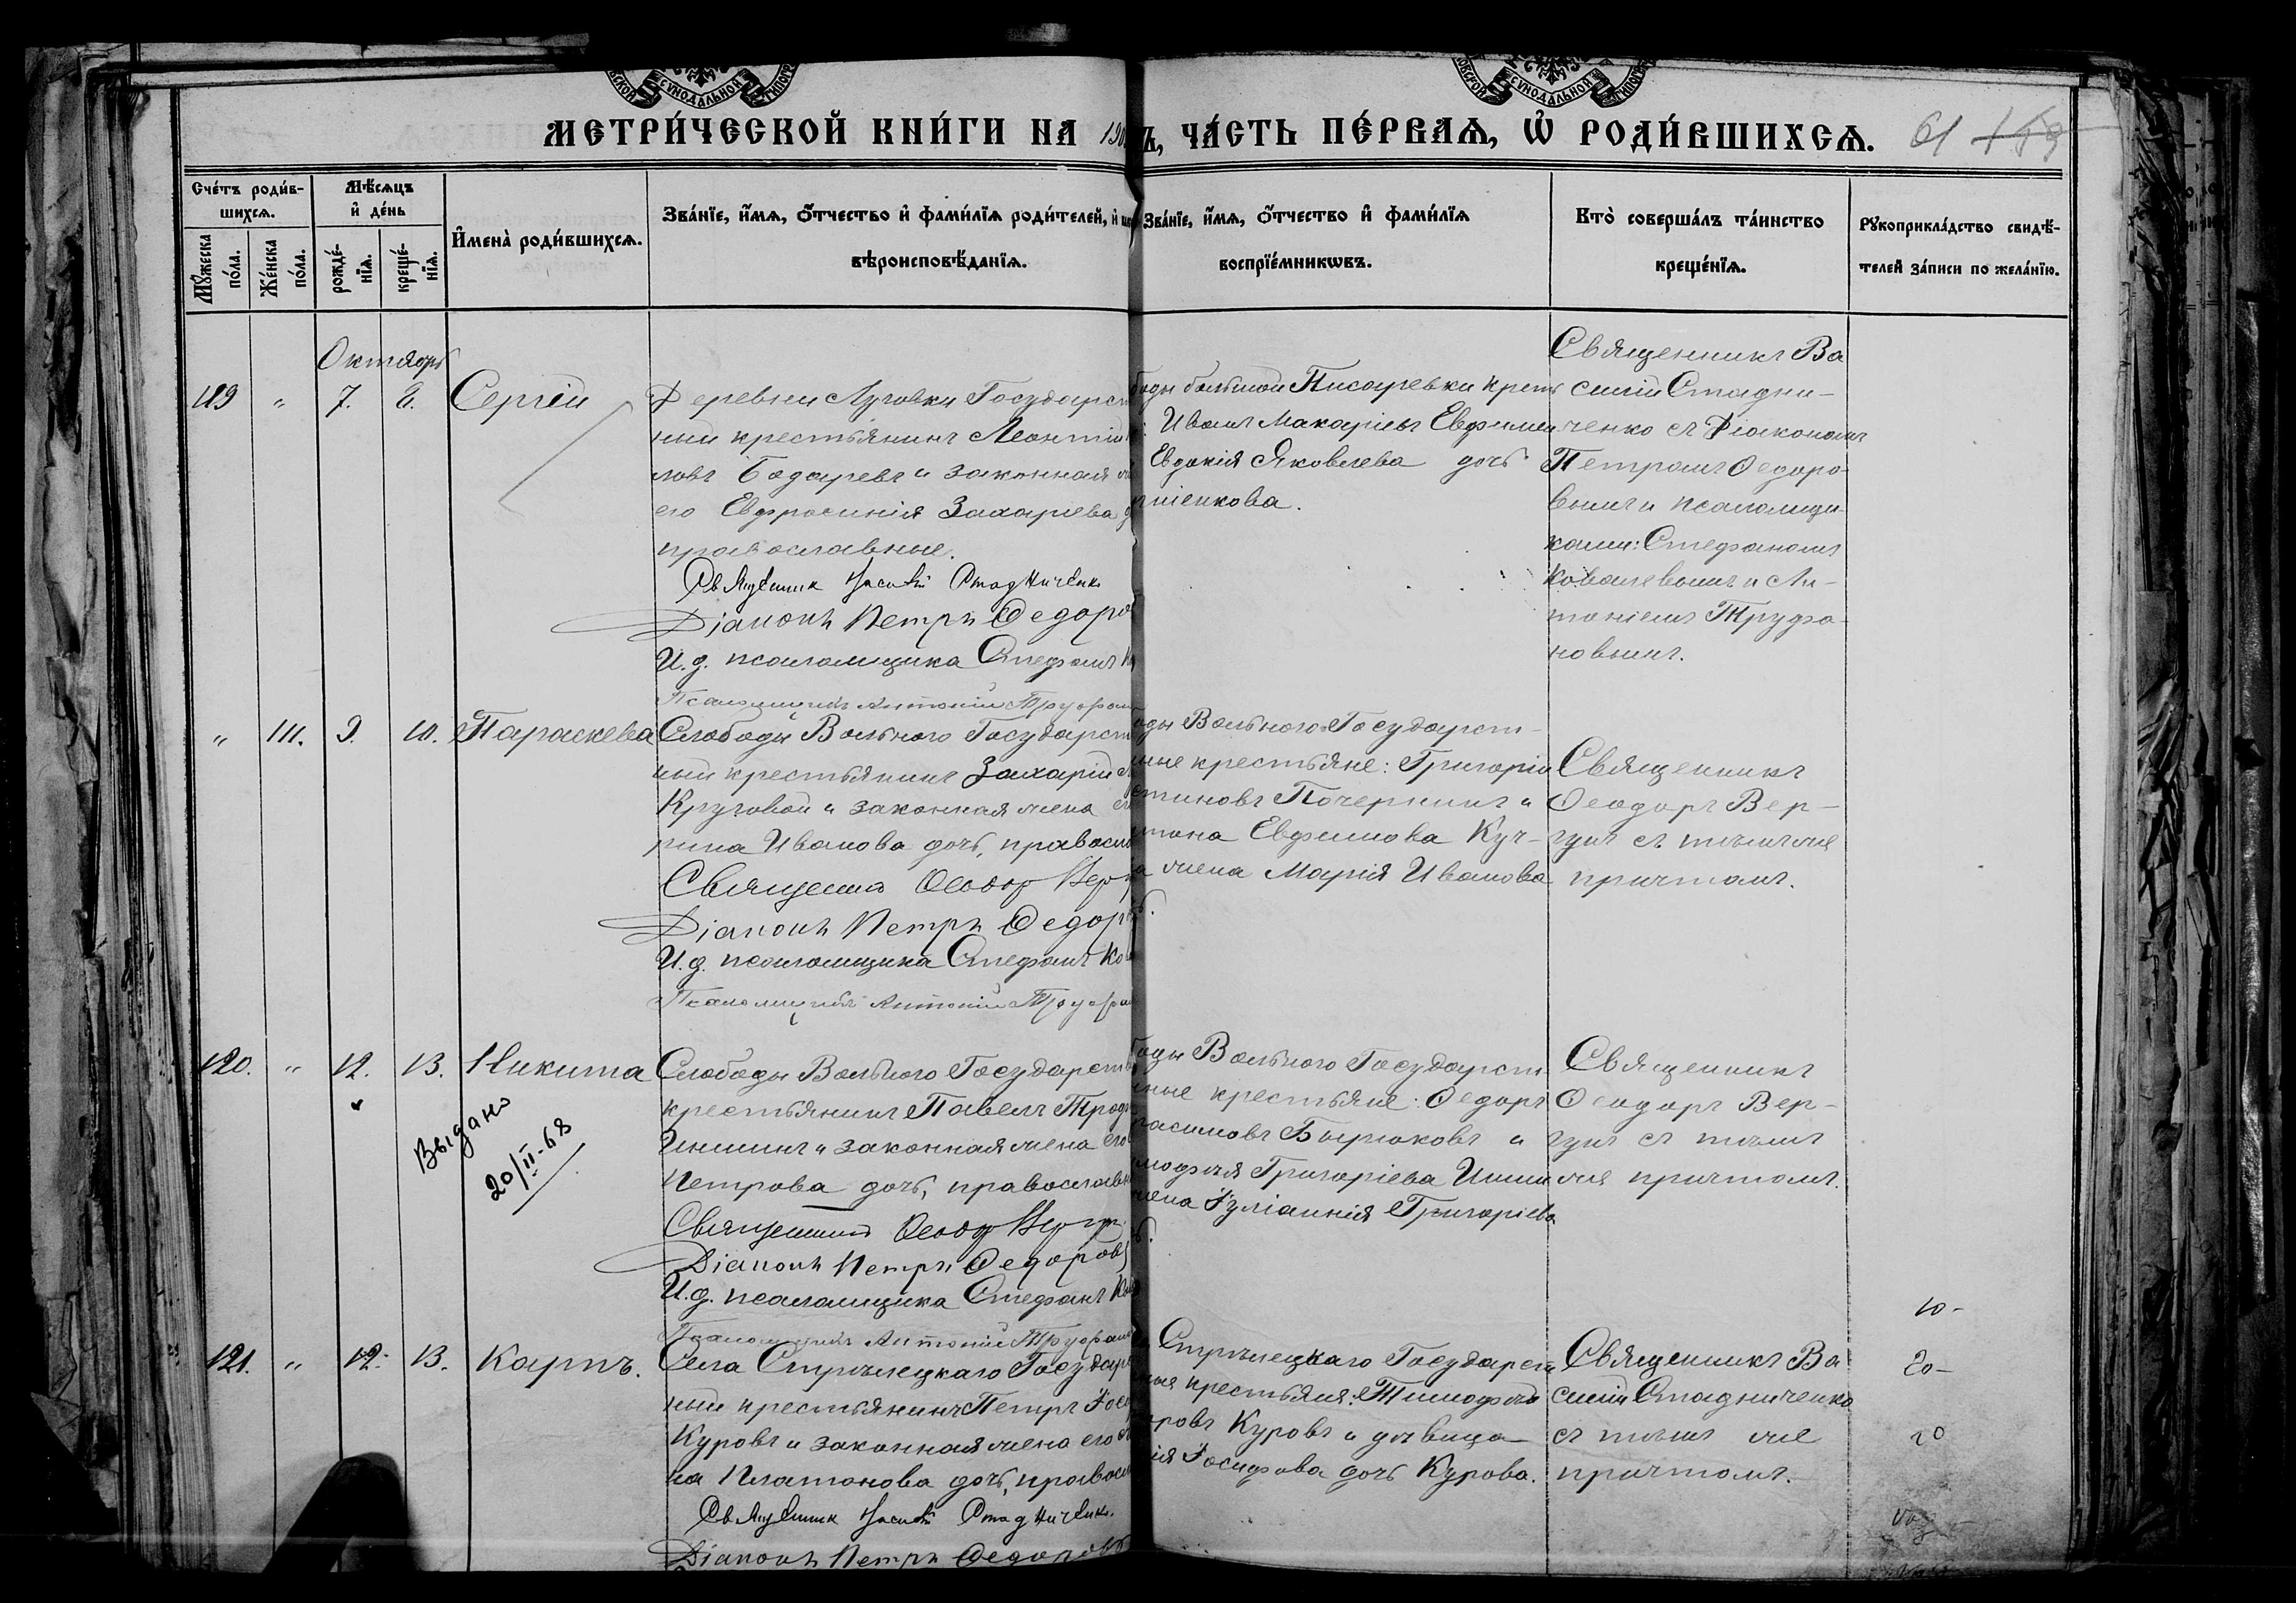 МЕТРИ́ЧЕСКОЙ КНИ́ГИ НА 190
Ъ, ЧА́СТЬ ПЕ́РВАѦ, Ѡ҆ РОДИ́ВШИХСѦ.
61 159
Сче́тъ роди́в-
шихсѧ.
Мꙋ́жеска по́ла.
Же́нска по́ла.
Мѣ́сѧцъ
и҆ де́нь
рожде́-
нїѧ.
креще́-
нїѧ.
И҆мена̀ роди́вшихсѧ.
Зва́нїе, и҆́мѧ, ѻ҆́тчество и҆ фами́лїѧ роди́телей, и҆
вѣроисповѣ́данїѧ.
Зва́нїе, и҆́мѧ, ѻ҆́тчество и҆ фами́лїѧ
воспрїе́мникѡвъ.
Кто̀ соверша́лъ та́инство
креще́нїѧ.
Рꙋкоприкла́дство свидѣ́-
телей за́писи по жела́нїю.
Октябрь
119 " 7. 8. Сергій
Деревни Луговки Государст
ный крестьянинъ Леонтій
ловъ Бодаревъ и законная
его Евфросинія Захаріева
православные.
Священник Василій Стадниченко
Діаконъ Петръ Ѳедоро
И. д. псаломщика Стефанъ
Псаломщикъ Антоній Труфан
боды большой Писаревки крест
Иванъ Макаріевъ Евфимен
Евдокія Яковлева дочь
пшенкова.
Священникъ Ва
силій Стадни-
ченко съ Діакономъ
Петромъ Ѳедоро-
вымъ и псаломщи-
ками: Стефаномъ
Ковалевымъ и Ан-
тоніемъ Труфа-
новымъ.
" 111. 9. 10. Параскева
Слободы Вольного Государст
ный крестьянинъ Захарій
Круговой и законная жена
рина Иванова дочь, правосла
Священник Ѳеодор Верг
Діаконъ Петръ Ѳедоро
И. д. псаломщика Стефанъ Ков
Псаломщикъ Антоній Труфан
оды Вольного Государст-
ные крестьяне: Григорій
стиновъ Почернинъ и
Евфимова Куч-
а жена Марія Иванова
Священникъ
Ѳеодоръ Вер-
гунъ съ тѣмъ же
причтомъ.
120. " 12. 13. Никита
Выдано
20/II-68
Слободы Вольного Государств
крестьянинъ Павелъ Троф
Инишинъ и законная жена его
Петрова дочь, православн
Священник Ѳеодор Вергун
Діаконъ Петръ Ѳедоровъ
И. д. псаломщика Стефанъ
Псаломщикъ Антоній Труфан
оды Вольного Государст
ные крестьяне: Ѳедоръ
расимовъ Бирюковъ и
Григоріева Иниш
жена Іуліаннія Григоріева
Священникъ
Ѳеодоръ Вер-
гунъ съ тѣмъ
же причтомъ.
121. " 12. 13. Карпъ.
Села Стрѣлецкаго Государ
ный крестьянинъ Петръ Іос
Куровъ и законная жена его
на Платонова дочь, правосл
Священник Василій Стадниченко.
Діаконъ Петръ Ѳедоровъ
Стрѣлецкаго Государст
крестьяне: Тимофей
ровъ Куровъ и дѣвица
ія Іосифова дочь Курова.
Священникъ Ва
силій Стадниченко
съ тѣмъ же
причтомъ.
10-
20-
20